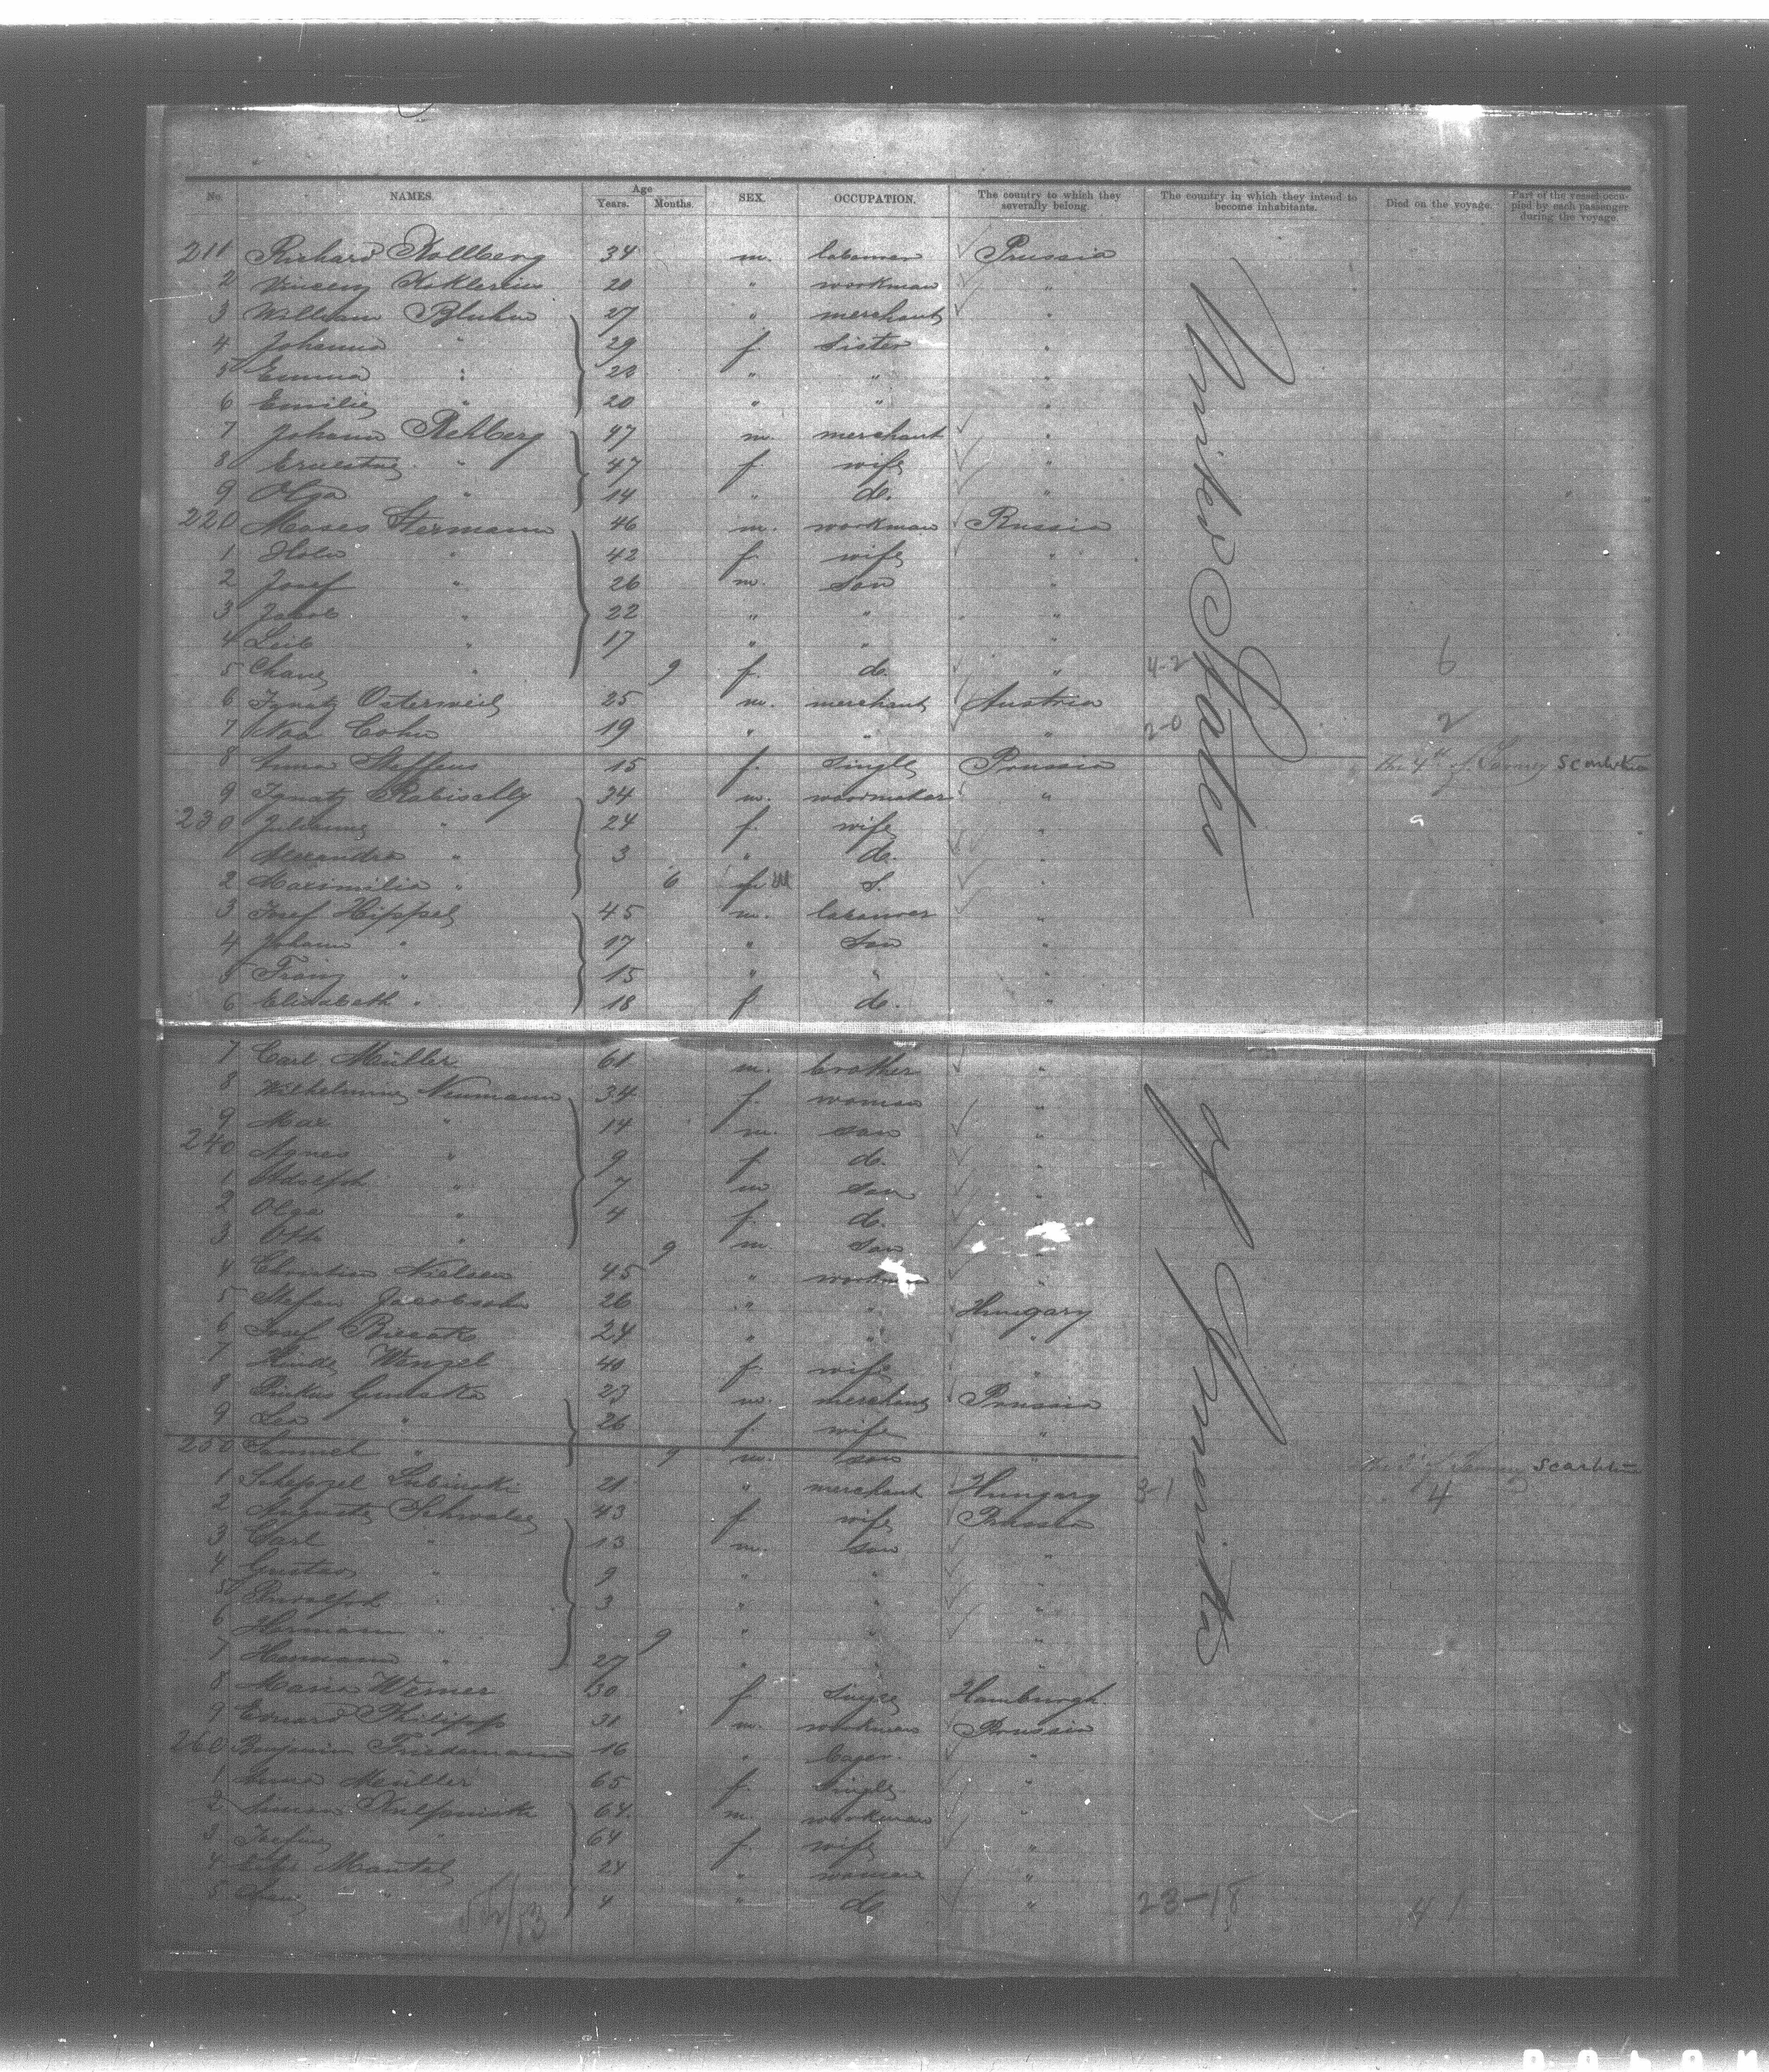 No. NAMES. Age Years. Months. SEX. OCCUPATION. The country to which they severally belong. The country in which they intend to become inhabitants. Died on the voyage. Part of the vessel occupied by each passenger during the voyage.
United States of America
211 Richard Kollberg 34 m. labourer Prussia
2 20 " workman "
3 William Bluhm 27 " merchant "
4 Johanna " 29 f. sister "
5 Emma " 23 " " "
6 Emilie " 20 " " "
7 Johann Rehberg 47 m. merchant "
8 Ernestine " 47 f. wife "
9 Olga " 14 " do. "
220 Moses Stermann 46 m. workman Russia
1 " 42 f. wife "
2 Josef " 26 m. son "
3 Jacob " 22 " " "
4 Leib " 17 " " "
5 Chane " 9 f. do. " 4-2 6
6 Ignatz Osterweil 25 m. merchant Austria
7 Noa Cohn 19 " " " 2-0 2
8 Anna Steffens 15 f. single Prussia the 4th of January scarlatina
9 Ignatz 34 m. "
230 Julianne " 24 f. wife "
1 Alexandra " 3 " do. "
2 Maximilia " 6 m S. "
3 Josef Hippel 45 m. labourer "
4 Johann " 17 " son "
5 Franz " 15 " " "
6 Elisabeth " 18 f do. "
7 Carl Müller 61 m. brother "
8 Wilhelmine Neumann 34 f. woman "
9 Max " 14 m. son "
240 Agnes " 9 f. do. "
1 Adolph " 7 m son "
2 Olga " 4 f. do. "
3 Otto " 9 m. son "
4 Christian Nielsen 45 " workman "
5 Stefan Jacobsohn 26 " " Hungary
6 Josef 24 " " "
7 Hinde Wenzel 40 f. wife "
8 Pinkus 23 m. merchant Prussia
9 Lea " 26 f. wife "
250 Samuel " 9 m. son " the of January scarlatina
1 Lubinski 21 " merchant Hungary 3-1 4
2 Auguste Schwalbe 43 f. wife Prussia
3 Carl " 13 m. son "
4 Gustav " 9 " " "
5 Rudolph " 3 " " "
6 Hermann " 9 " " "
7 Hermann " 27 " " "
8 Maria Werner 30 f. single Hamburgh.
9 Eduard Philipp 31 m. workman Prussia
260 Benjamin Friedemann 16 " "
1 Anna Müller 65 f. single "
2 Simon 64 m. workman "
3 " 64 f. wife "
4 Mantel 24 " woman "
5 " 4 " do "
23-18 41